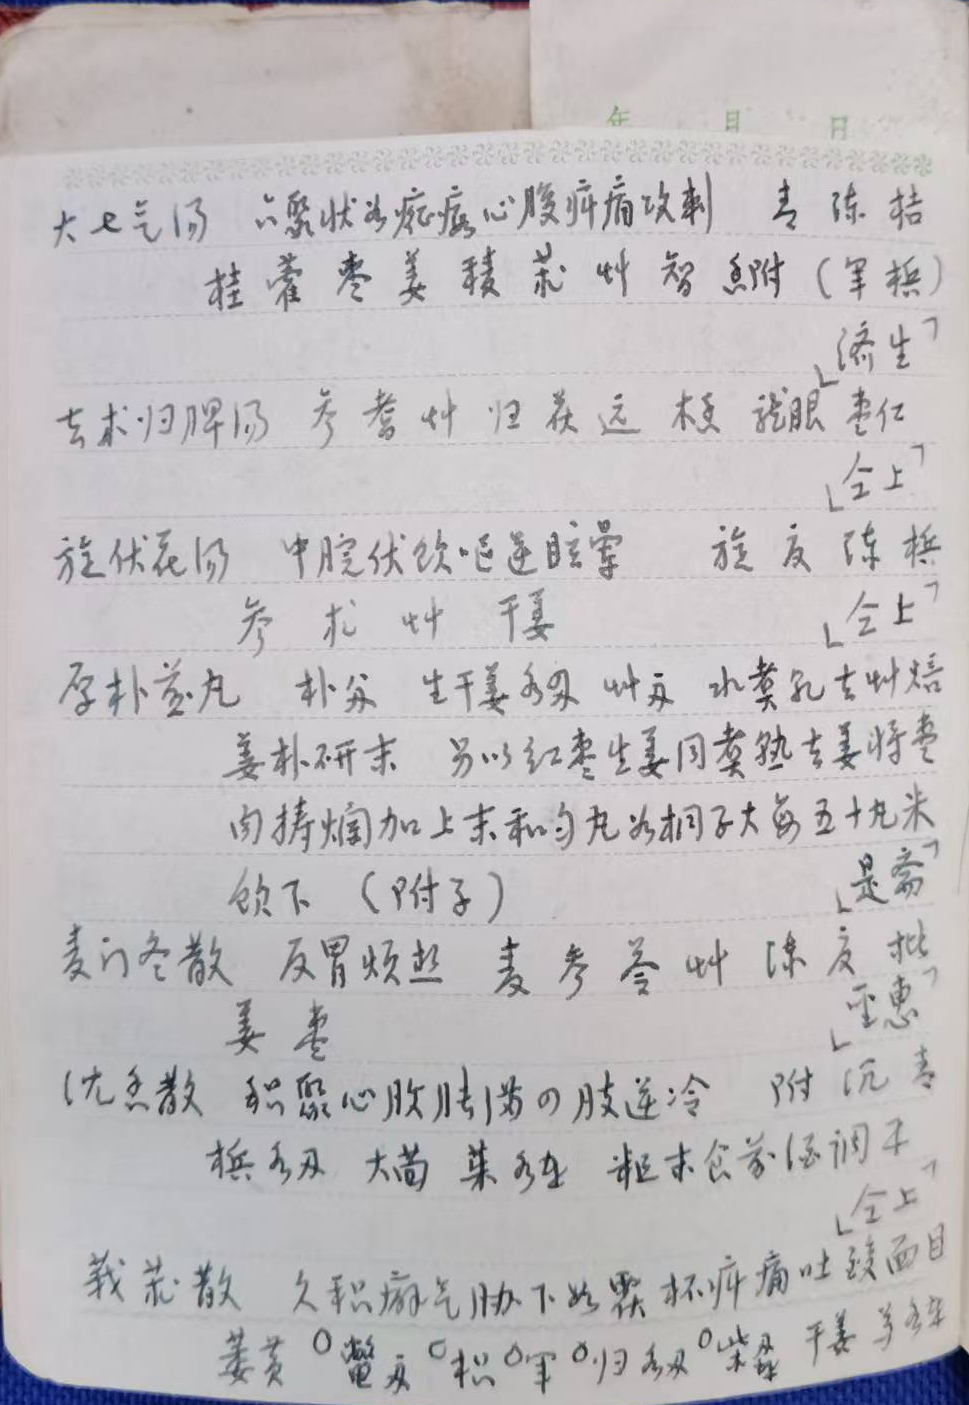 年 月 日
大七气汤 六聚状如癥瘕心腹疼痛攻刺 青 陈 桔
桂 藿 枣 姜 棱 莪 艸 智 香附 (军 槟)
「济生」
去术归脾汤 参 耆 艸 归 茯 远 木香 龙眼 枣仁
「仝上」
旋伏花汤 中脘伏饮呕逆眩晕 旋 夏 陈 槟
参 术 艸 干姜
「仝上」
厚朴煎丸 朴 生干姜各 艸 水煮 去艸焙
姜朴研末 另以红枣生姜同煮熟去姜将枣
肉捣烂加上末和匀丸如桐子大每五十丸米
饮下 (附子)
「是斋」
麦门冬散 反胃烦热 麦 参 苓 艸 陈 夏 枇
姜 枣
「圣惠」
沈香散 积聚心腹胀满四肢逆冷 附 沉 青
槟各 大茴 茱各 粗末食前酒调下
「仝上」
莪茂散 久积癖气胁下如覆杯疼痛吐酸面目
萎黄 鳖 枳 军 归各 柴 干姜